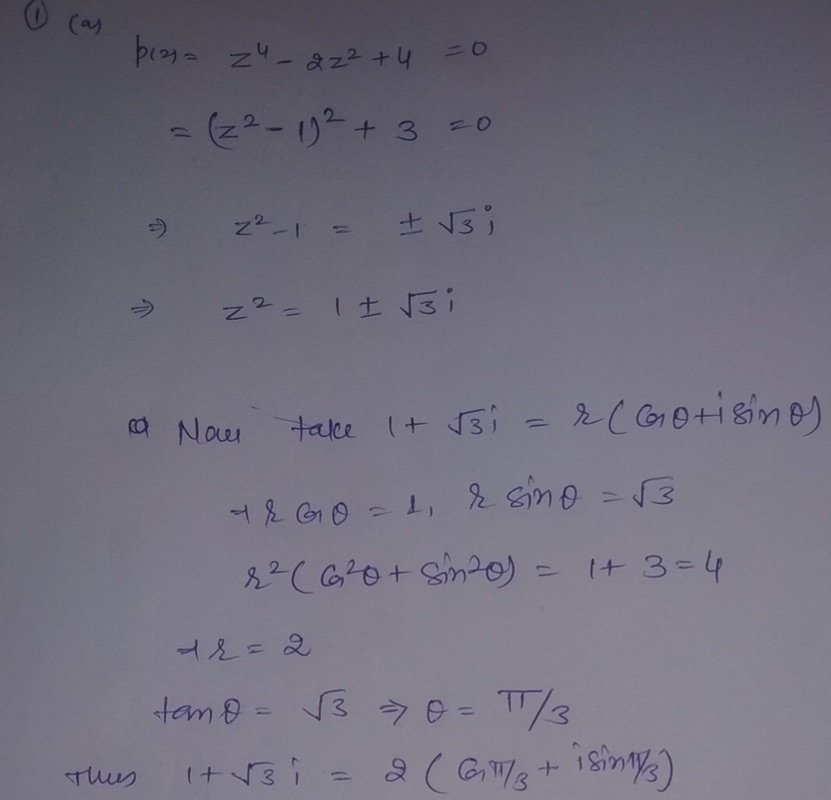 ① (a)
p(z) = z⁴ - 2z² + 4 = 0
= (z² - 1)² + 3 = 0
⇒ z² - 1 = ± √3 i
⇒ z² = 1 ± √3 i
Now take 1 + √3 i = r (Cos θ + i sin θ)
⇒ r Cos θ = 1, r sin θ = √3
r² (Cos² θ + sin² θ) = 1 + 3 = 4
⇒ r = 2
tan θ = √3 ⇒ θ = π/3
Thus 1 + √3 i = 2 (Cos π/3 + i sin π/3)